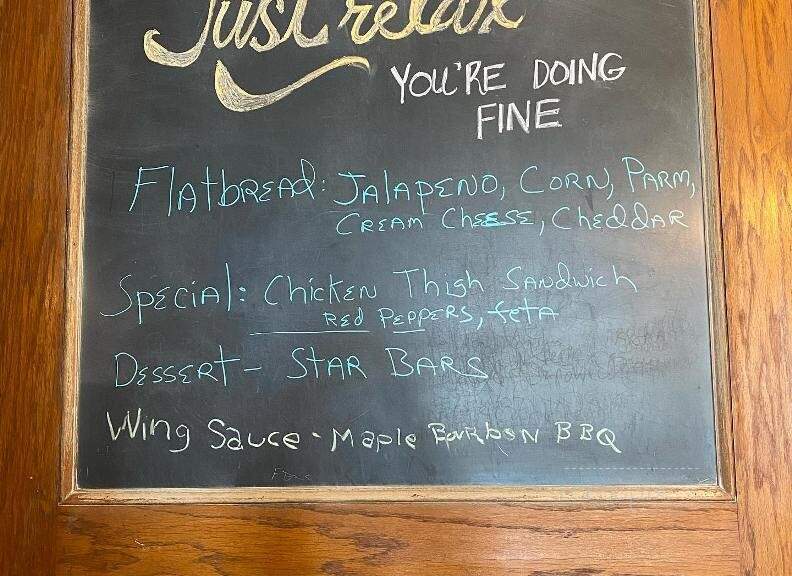 Just relax
YOU'RE DOING
FINE
FlatbREAd: JALAPENO, CORN, PARM,
CREAM ChEESE, ChEddAR
SpEciAl: ChickEN Thigh SANdwich
REd PEPPERS, fetA
DESSERT - STAR BARS
Wing Sauce - Maple BourboN BBQ